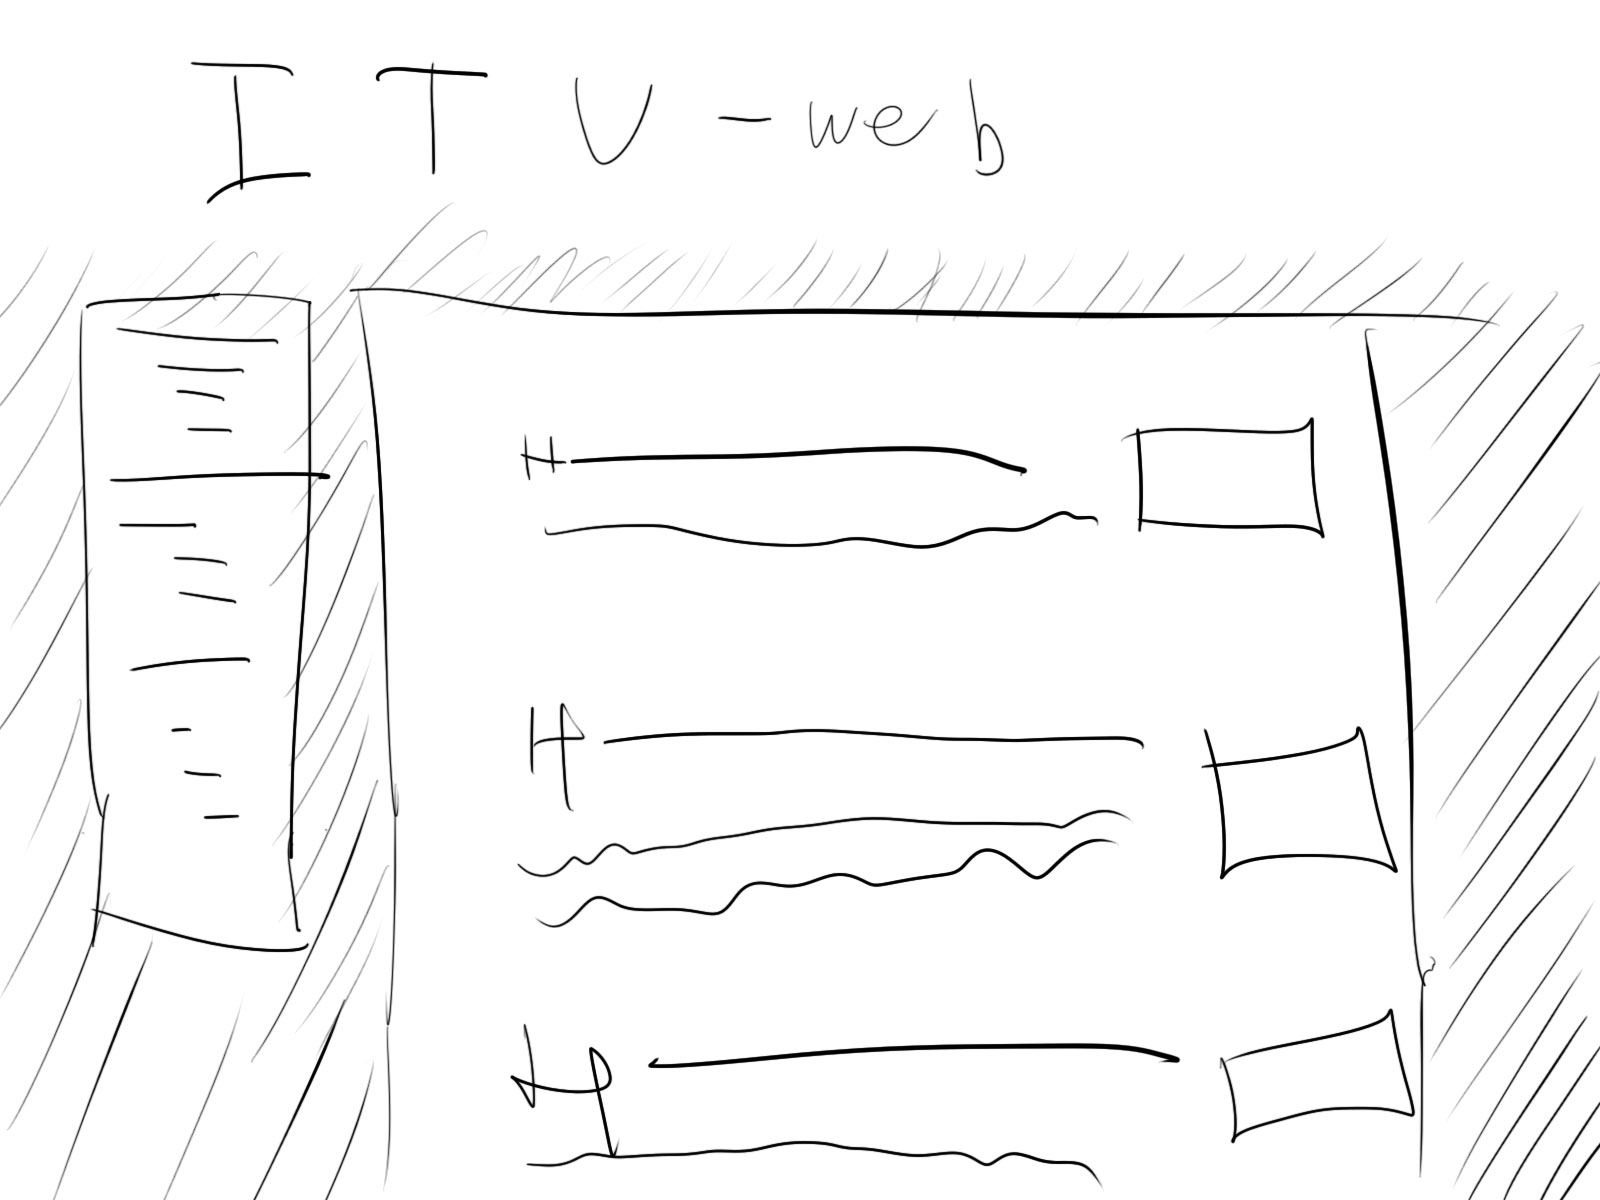 ITV-web
H
H
H